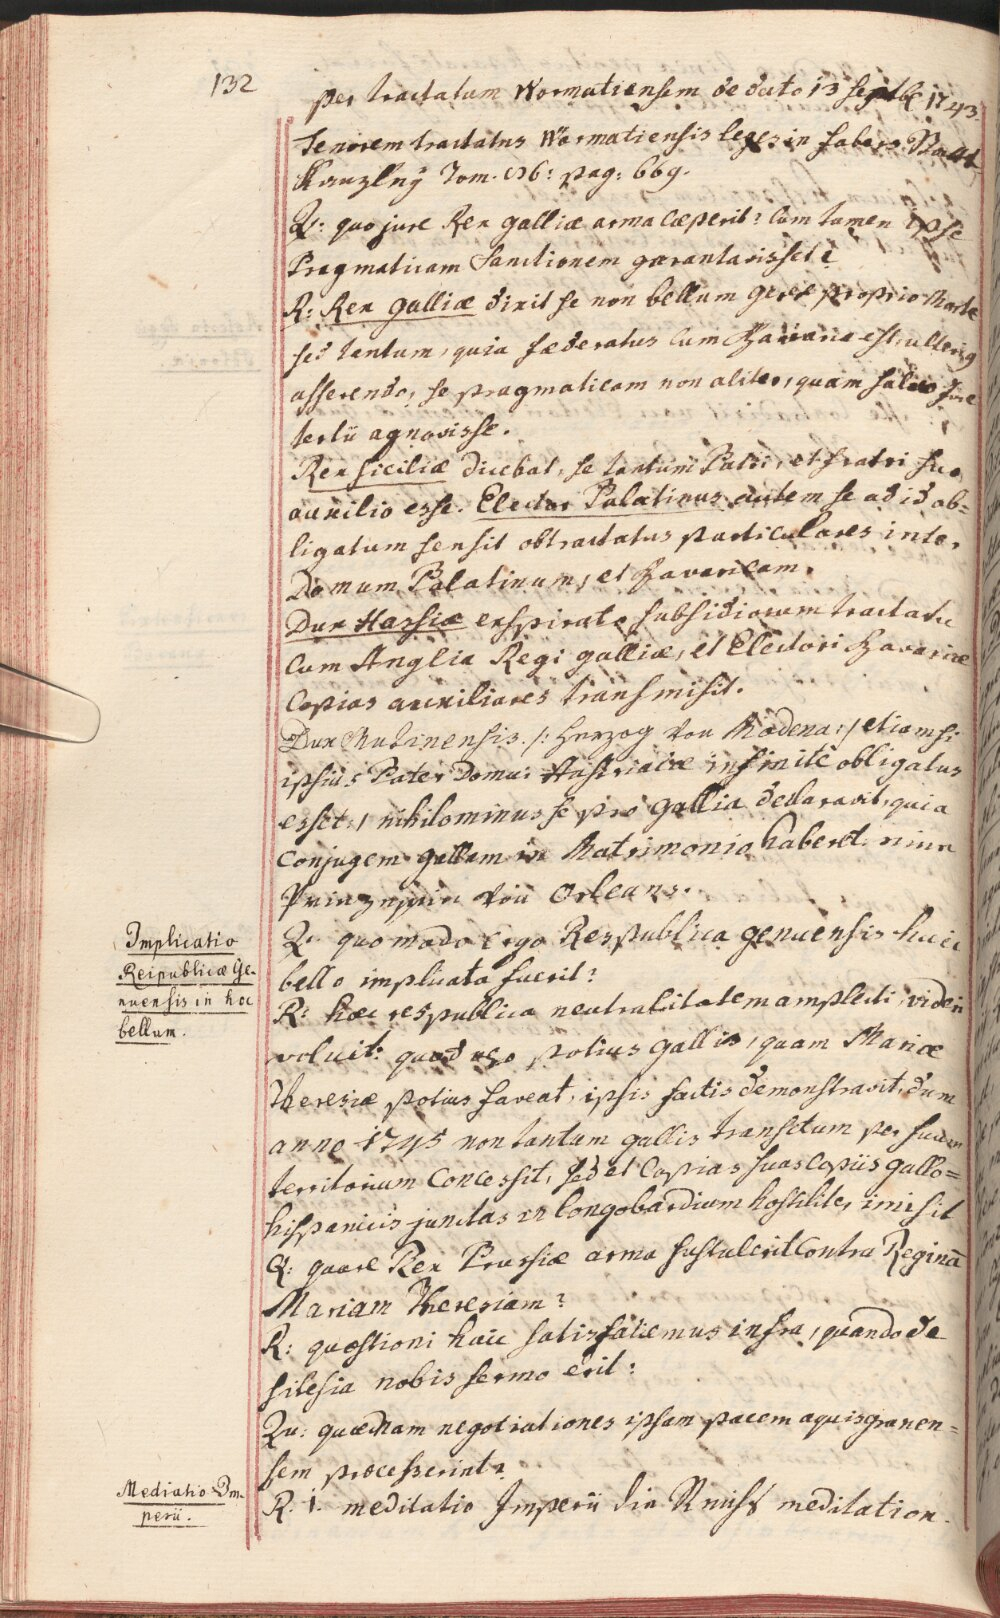 132
per tractatum Wormatiensem de dato 13 Septbr 1743.
Tenorem tractatus Wormatiensis leges in fabers Staat
Kanzlej Tom. 86: pag: 669.
Q: quo jure Rex galliæ arma cæperit? cum tamen ipse
Pragmaticam Sanctionem garantavisset?
R: Rex galliæ dixit se non bellum gere proprio Marte
sed tantum, quia fæderatus cum Bavaria est, ulterig
asserendo, se pragmaticam non aliter, quam salvo Jure
tertii agnovisse.
Rex siciliæ dicebat, se tantum Patri, et fratri suo
auxilio esse. Elector Palatinus autem se ad id ob=
ligatum sensit ob tractatus particulares inter
Domum Palatinum, et Bavaricam.
Dux Hassiæ exspirato subsidiorum tractatu
cum Anglia Regi galliæ, et Electori Bavariæ
copias auxiliares transmisit.
Dux Mutinensis /: Herzog von Modena: / etiamsi
ipsius Pater Domui Austriacæ infinitè obligatus
esset, / nihilominus se pro gallia declaravit, quia
conjugem gallam in Matrimonio haberet. einn
Prinzessin von Orleans.
Implicatio
Reipublicæ Ge-
nuensis in hoc
bellum.
Q: quomodo ergo Respublica genuensis huic
bello implicata fuerit?
R: hæc respublica neutralitatem amplecti videri
voluit: quod ergo potius gallis, quam Mariæ
Theresiæ potius faveat, ipsis factis demonstravit, dum
anno 1745 non tantum gallis transitum per suum
territorium concessit, sed et copias suas copiis gallo=
hispanicis junctas in Longobardiam hostiliter imisit
Q: quare Rex Prussiæ arma sustulerit contra Reginā
Mariam Theresiam?
R: quæstioni huic satisfaciemus infra, quando de
silesia nobis sermo erit:
Qu: quædnam negotiationes ipsam pacem aquisgranen=
sem præcesserint?
Mediatio Im-
perii.
R. 1. meditatio Imperii die Reichs meditation.